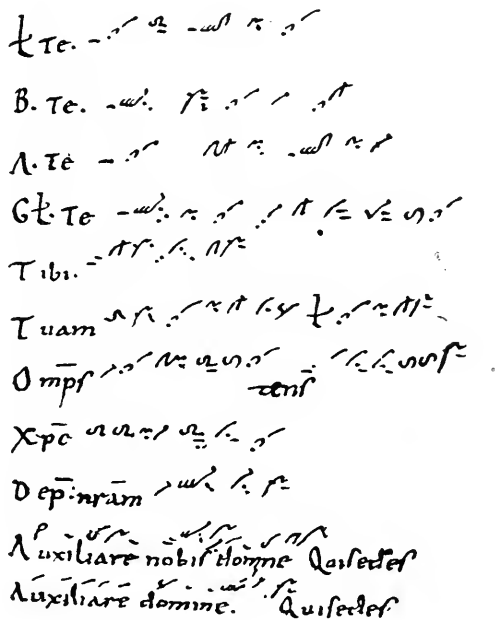 Ł Te.
B. Te.
A. Te
Gł. Te
Tibi.
Tuam ł
Omp̄s tens̄
Xp̄c
Dep̄:nrām
Auxiliare nobis domne Qui sedes
Auxiliare domine. Qui sedes